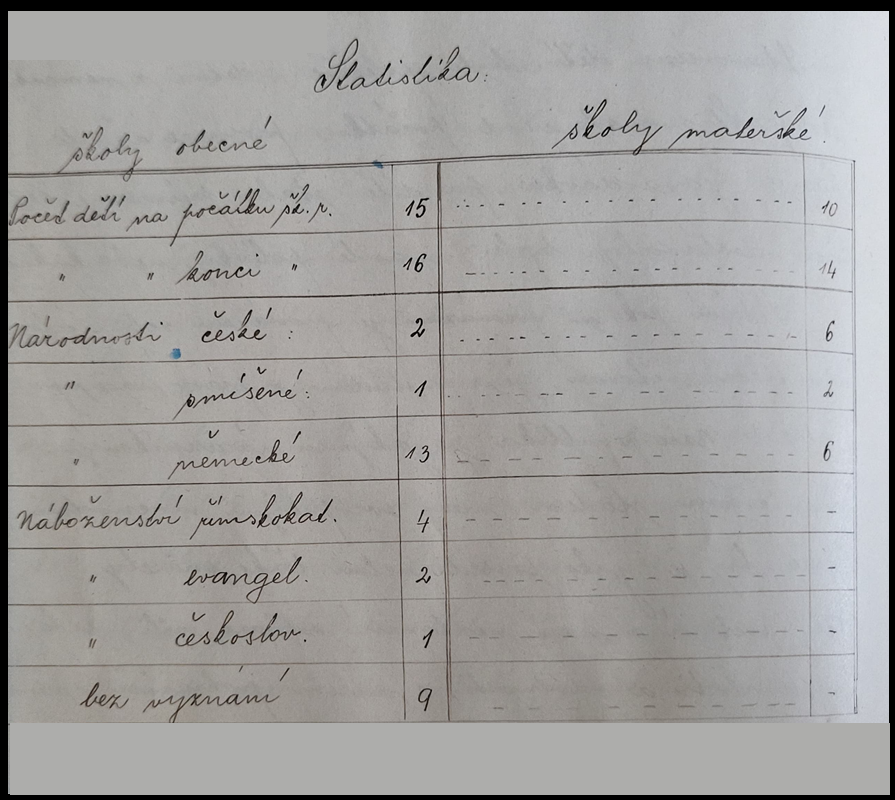 Statistika:
školy obecné
školy mateřské.
Počet dětí na počátku šk. r. 15 10
" " konci " 16 14
Národnosti české : 2 6
" smíšené : 1 2
" německé 13 6
Náboženství římskokat. 4 -
" evangel. 2 -
" českoslov. 1 -
bez vyznání 9 -